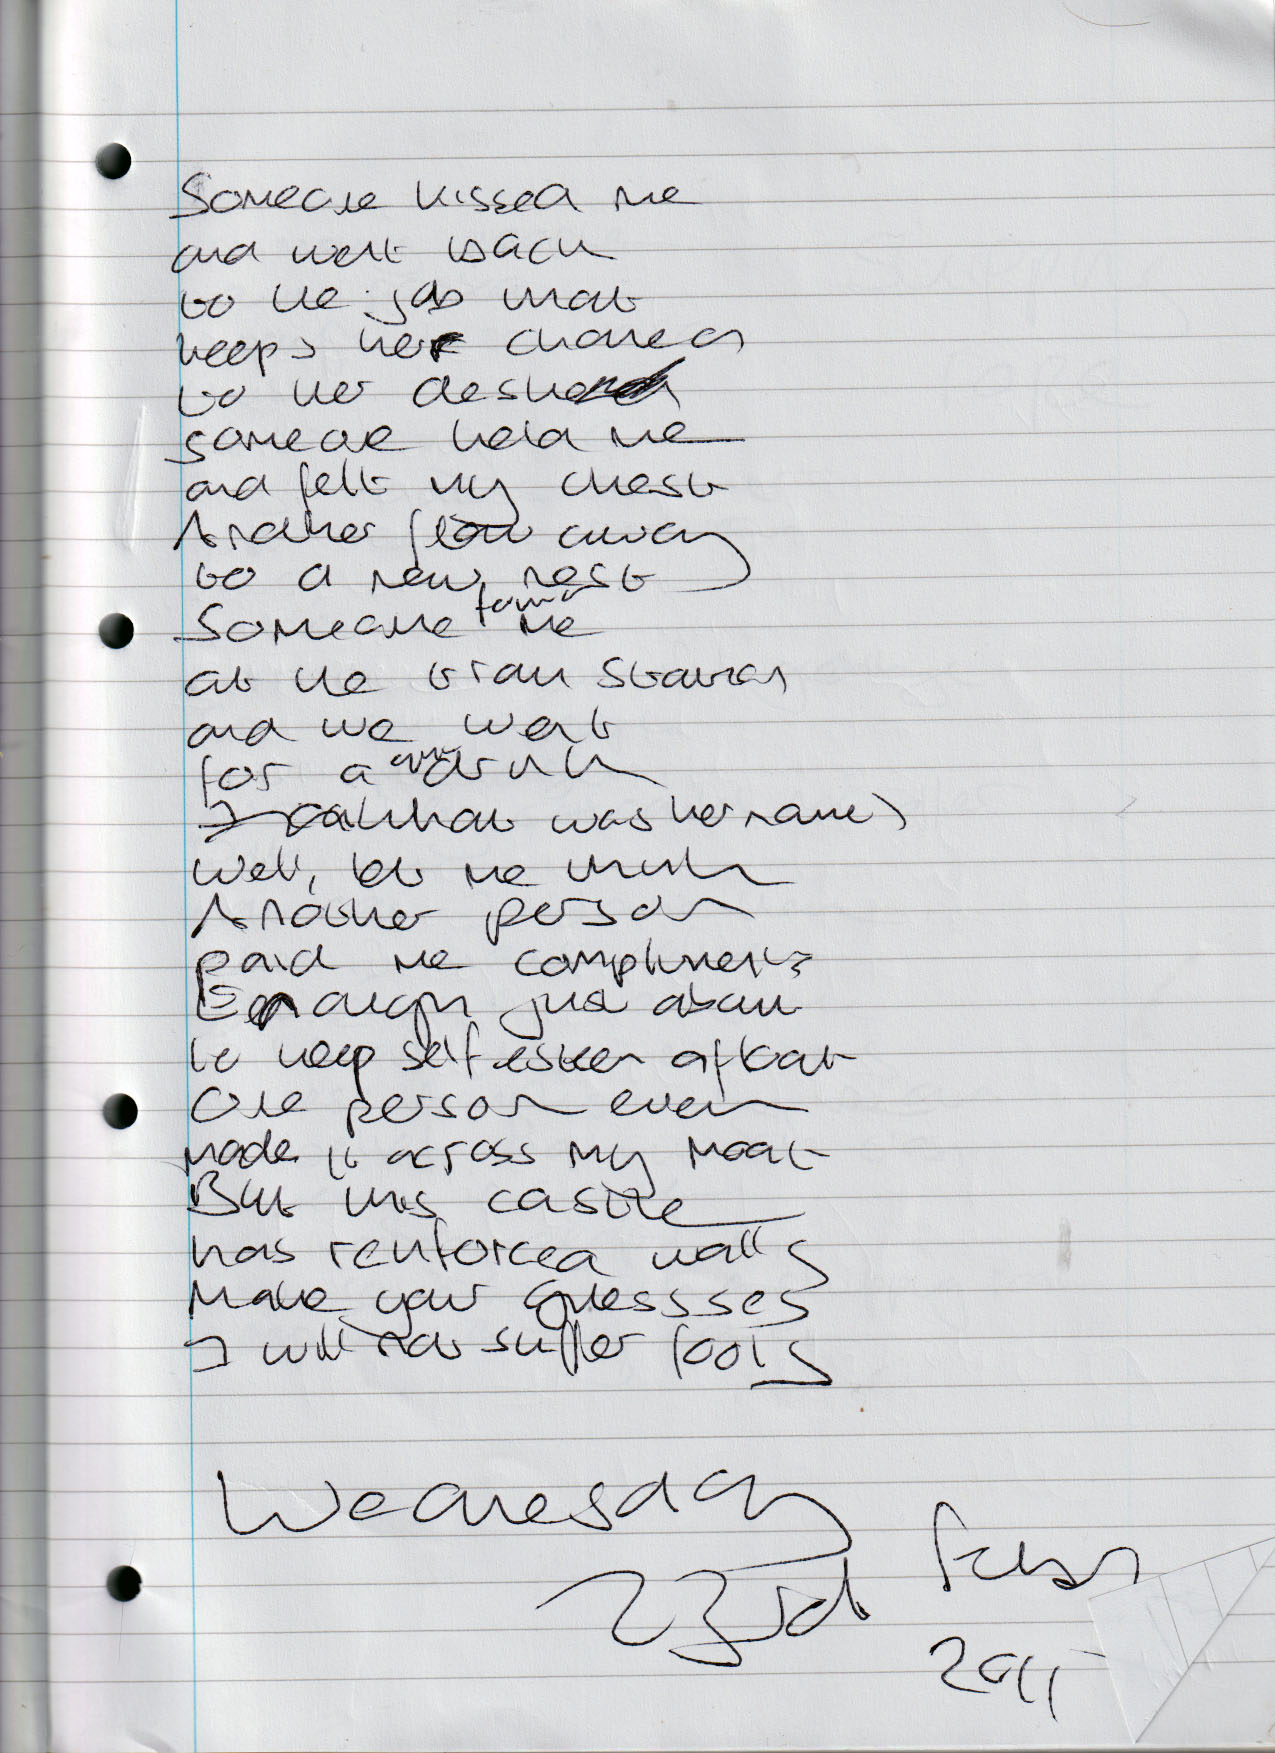 Someone kissed me
and went back
to the job that
keeps her chained
to her desk
someone held me
and felt my chest
Another flew away
to a new nest
Someone found me
at the train station
and we went
for a drink
what was her name)
Well, let me think
Another person
paid me compliments
Enough just about
to keep self esteem afloat
One person even
made it across my moat
But this castle
has reinforced walls
Make your guessses
I will not suffer fools
Wednesday
23rd Feb
2011